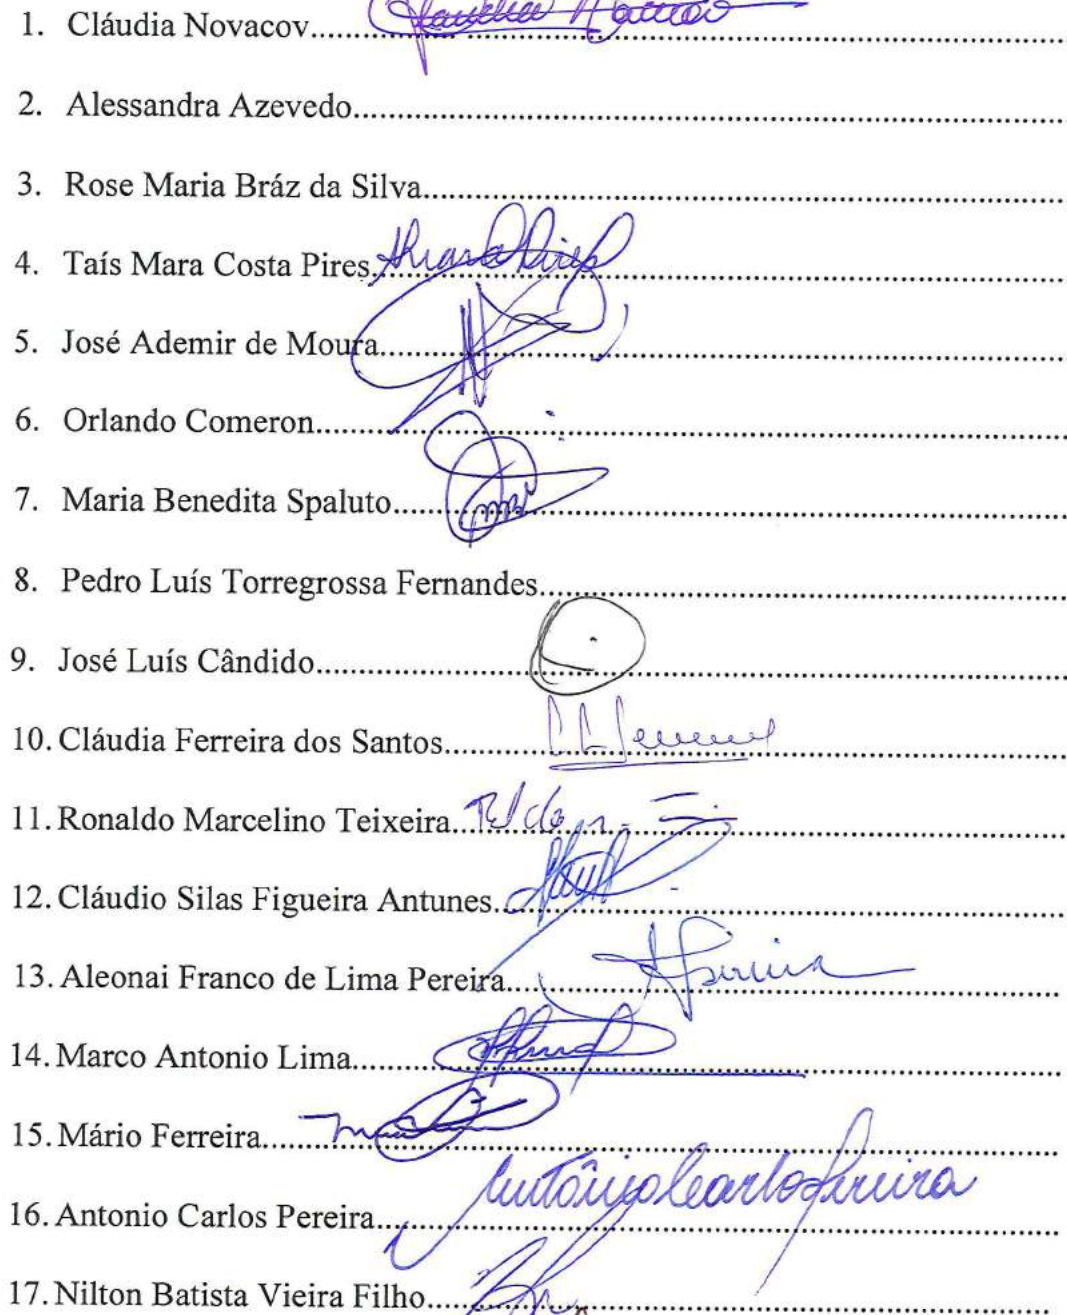 1. Cláudia Novacov
2. Alessandra Azevedo
3. Rose Maria Bráz da Silva
4. Taís Mara Costa Pires
5. José Ademir de Moura
6. Orlando Comeron
7. Maria Benedita Spaluto
8. Pedro Luís Torregrossa Fernandes
9. José Luís Cândido
10. Cláudia Ferreira dos Santos
11. Ronaldo Marcelino Teixeira
12. Cláudio Silas Figueira Antunes
13. Aleonai Franco de Lima Pereira
14. Marco Antonio Lima
15. Mário Ferreira
16. Antonio Carlos Pereira Antônio Carlos Pereira
17. Nilton Batista Vieira Filho